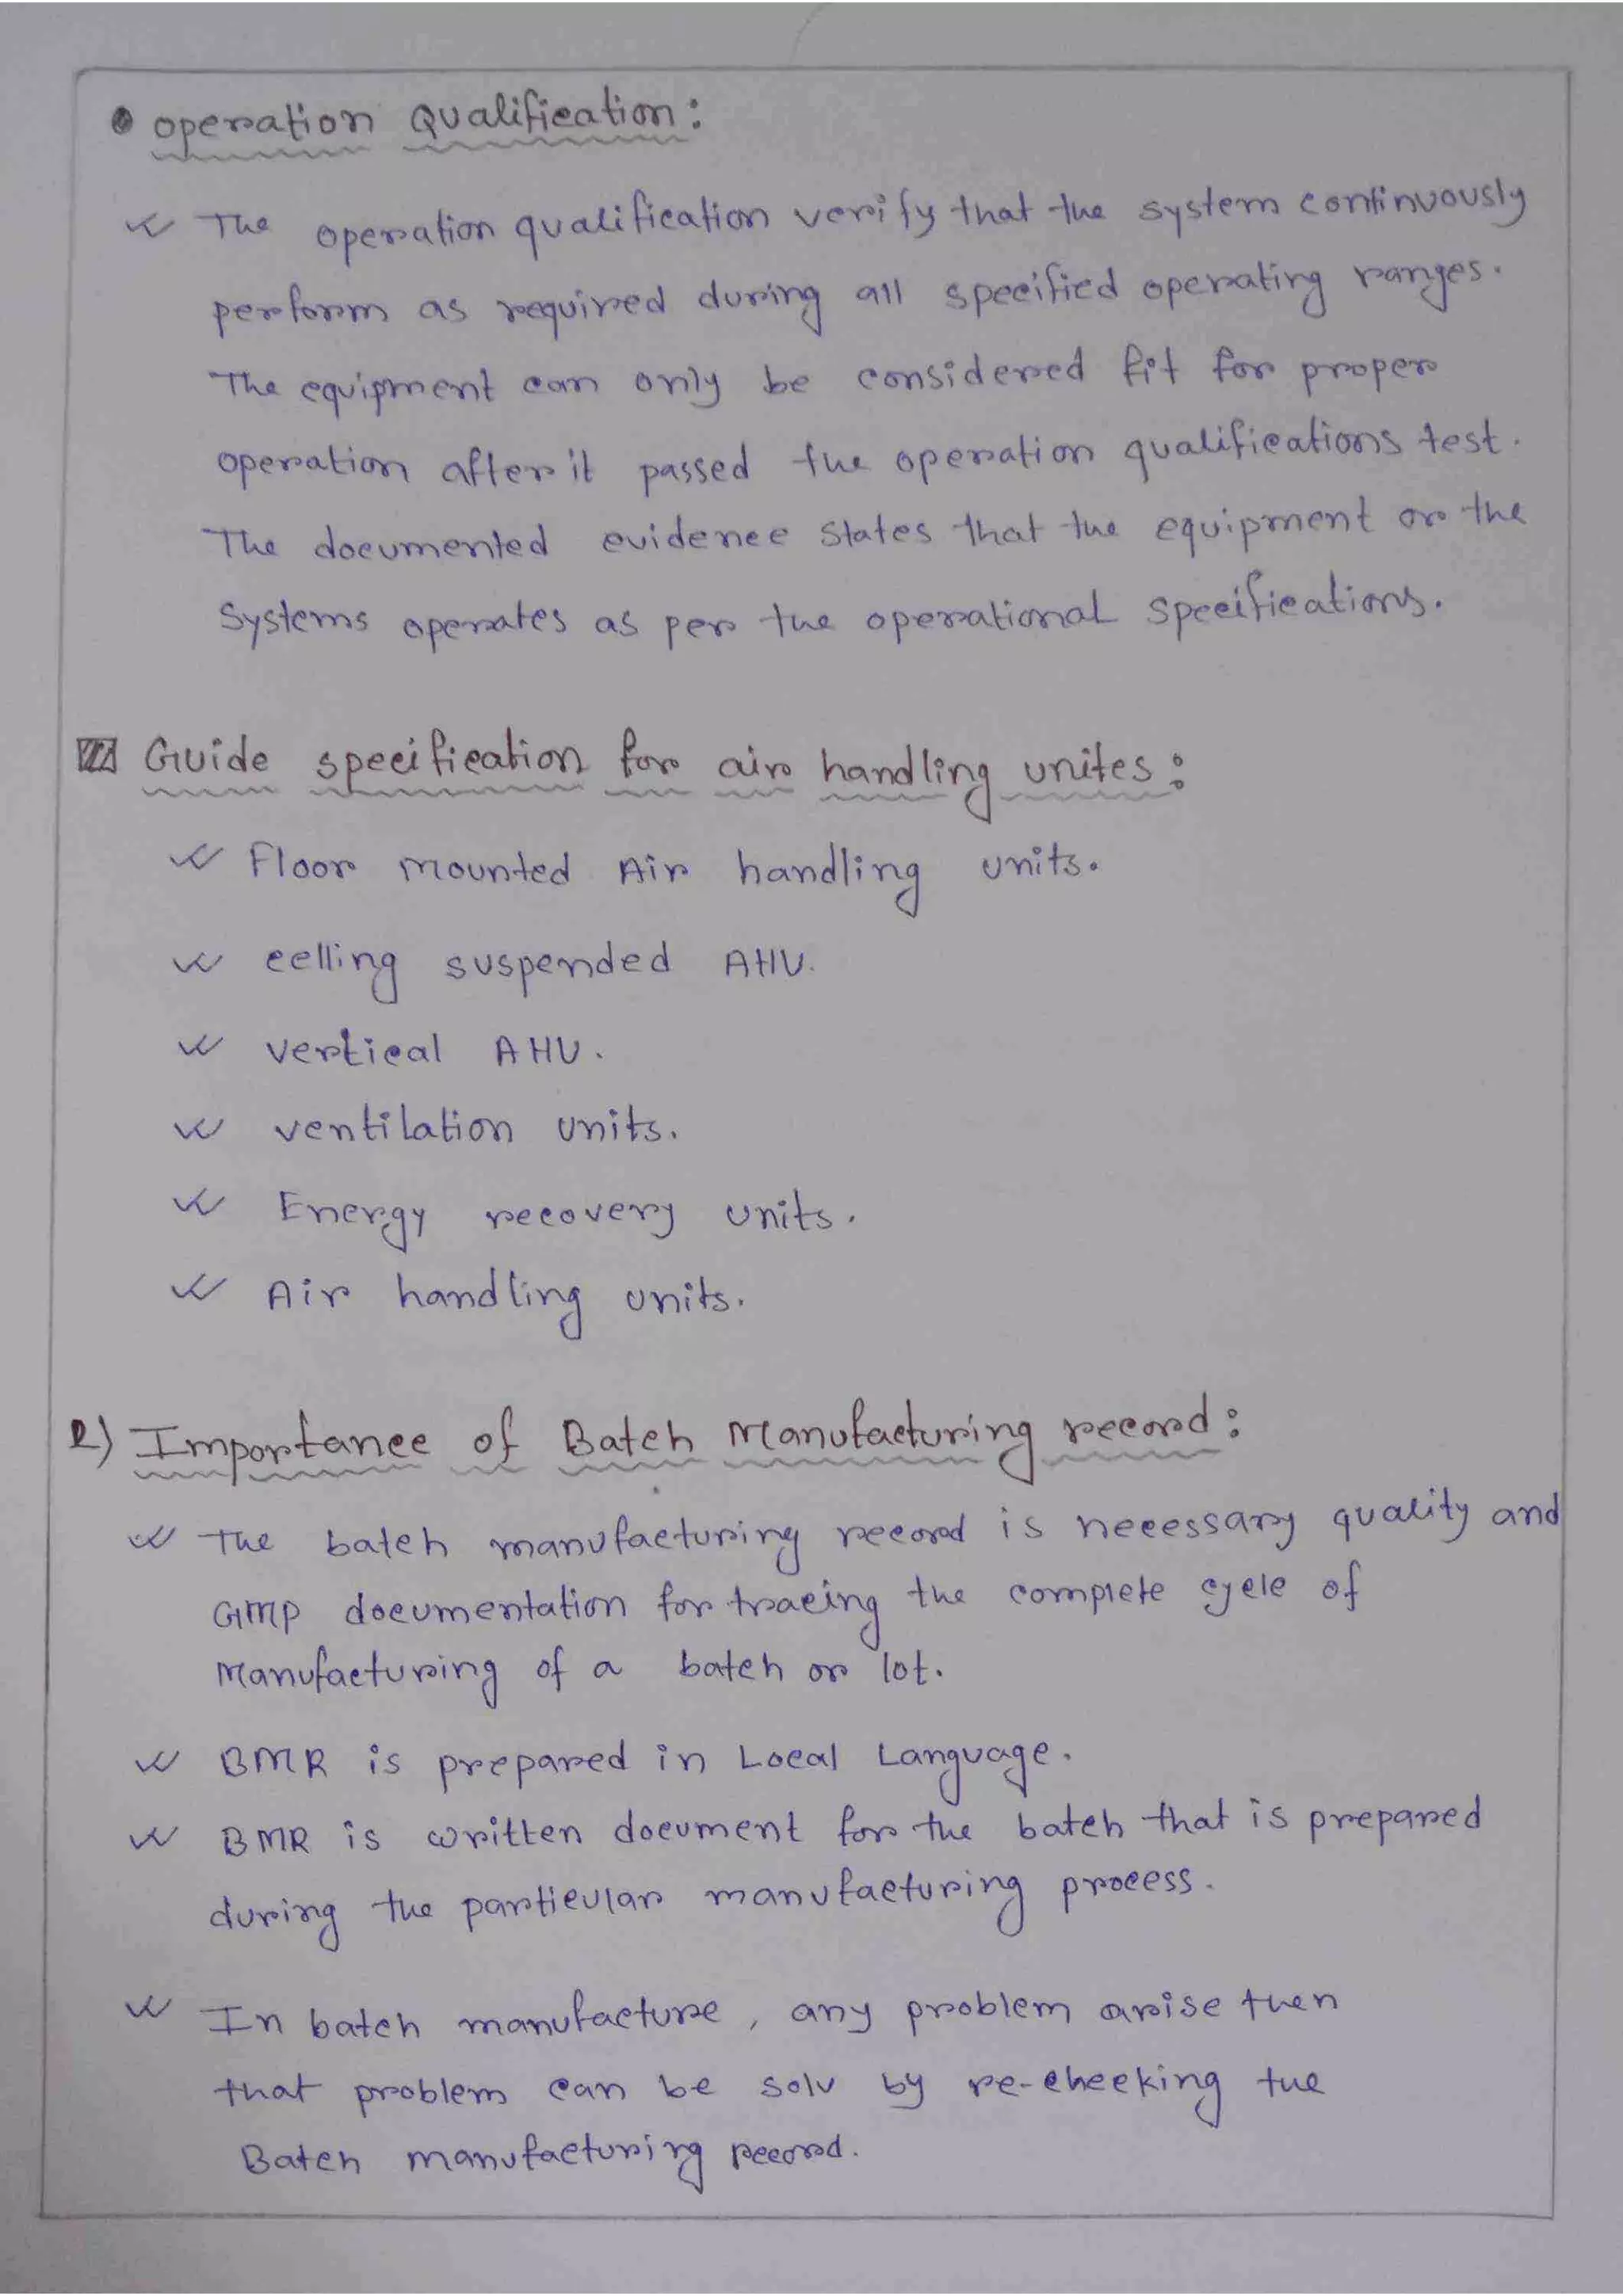 operation Qualification:
The operation qualification verify that the system continuously
perform as required during all specified operating ranges.
The equipment can only be considered fit for proper
operation after it passed the operation qualifications test.
The documented evidence states that the equipment or the
Systems operates as per the operational specifications.
Guide specification for air handling unites:
Floor mounted Air handling units.
celling suspended AHU.
vertical AHU.
ventilation units.
Energy recovery units.
Air handling units.
2) Importance of Batch Manufacturing record:
The batch manufacturing record is necessary quality and
GMP documentation for tracing the complete cycle of
Manufacturing of a batch or lot.
BMR is prepared in Local Language.
BMR is written document for the batch that is prepared
during the particular manufacturing process.
In batch manufacture, any problem arise then
that problem can be solv by re-checking the
Batch manufacturing record.